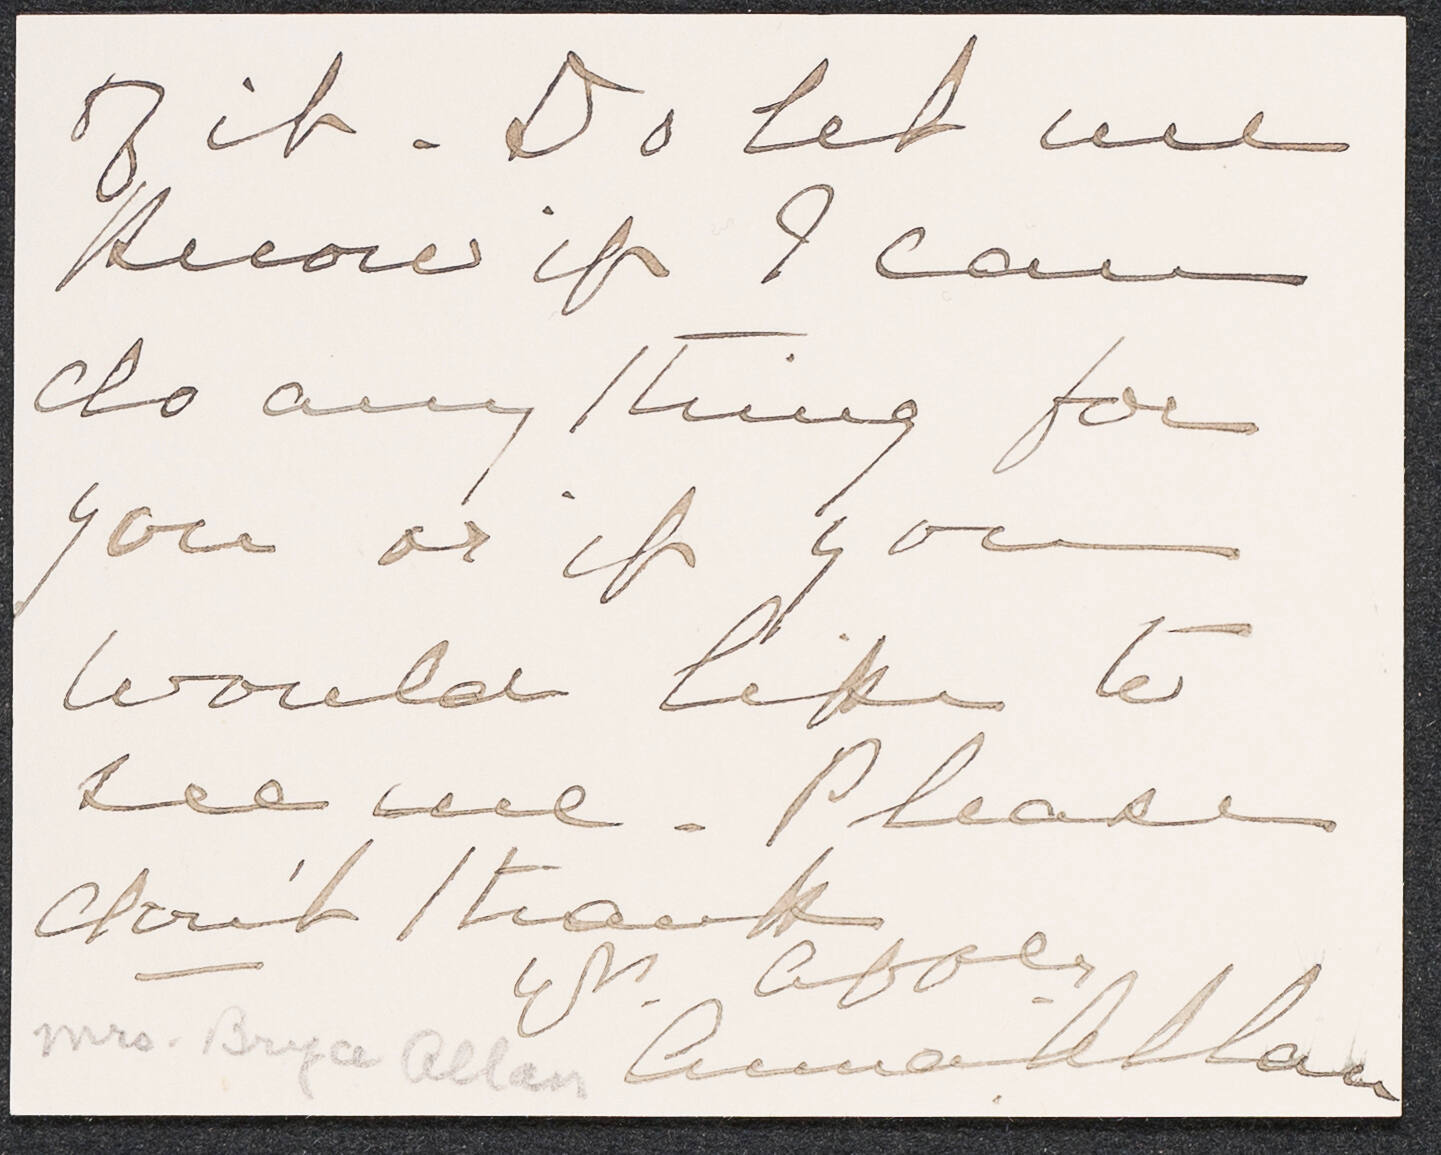 of it - Do let me
know if I can
do anything for
you or if you
would like to
see me - Please
don't thank
yr. affec.
Anna Allan
Mrs. Bryce Allan